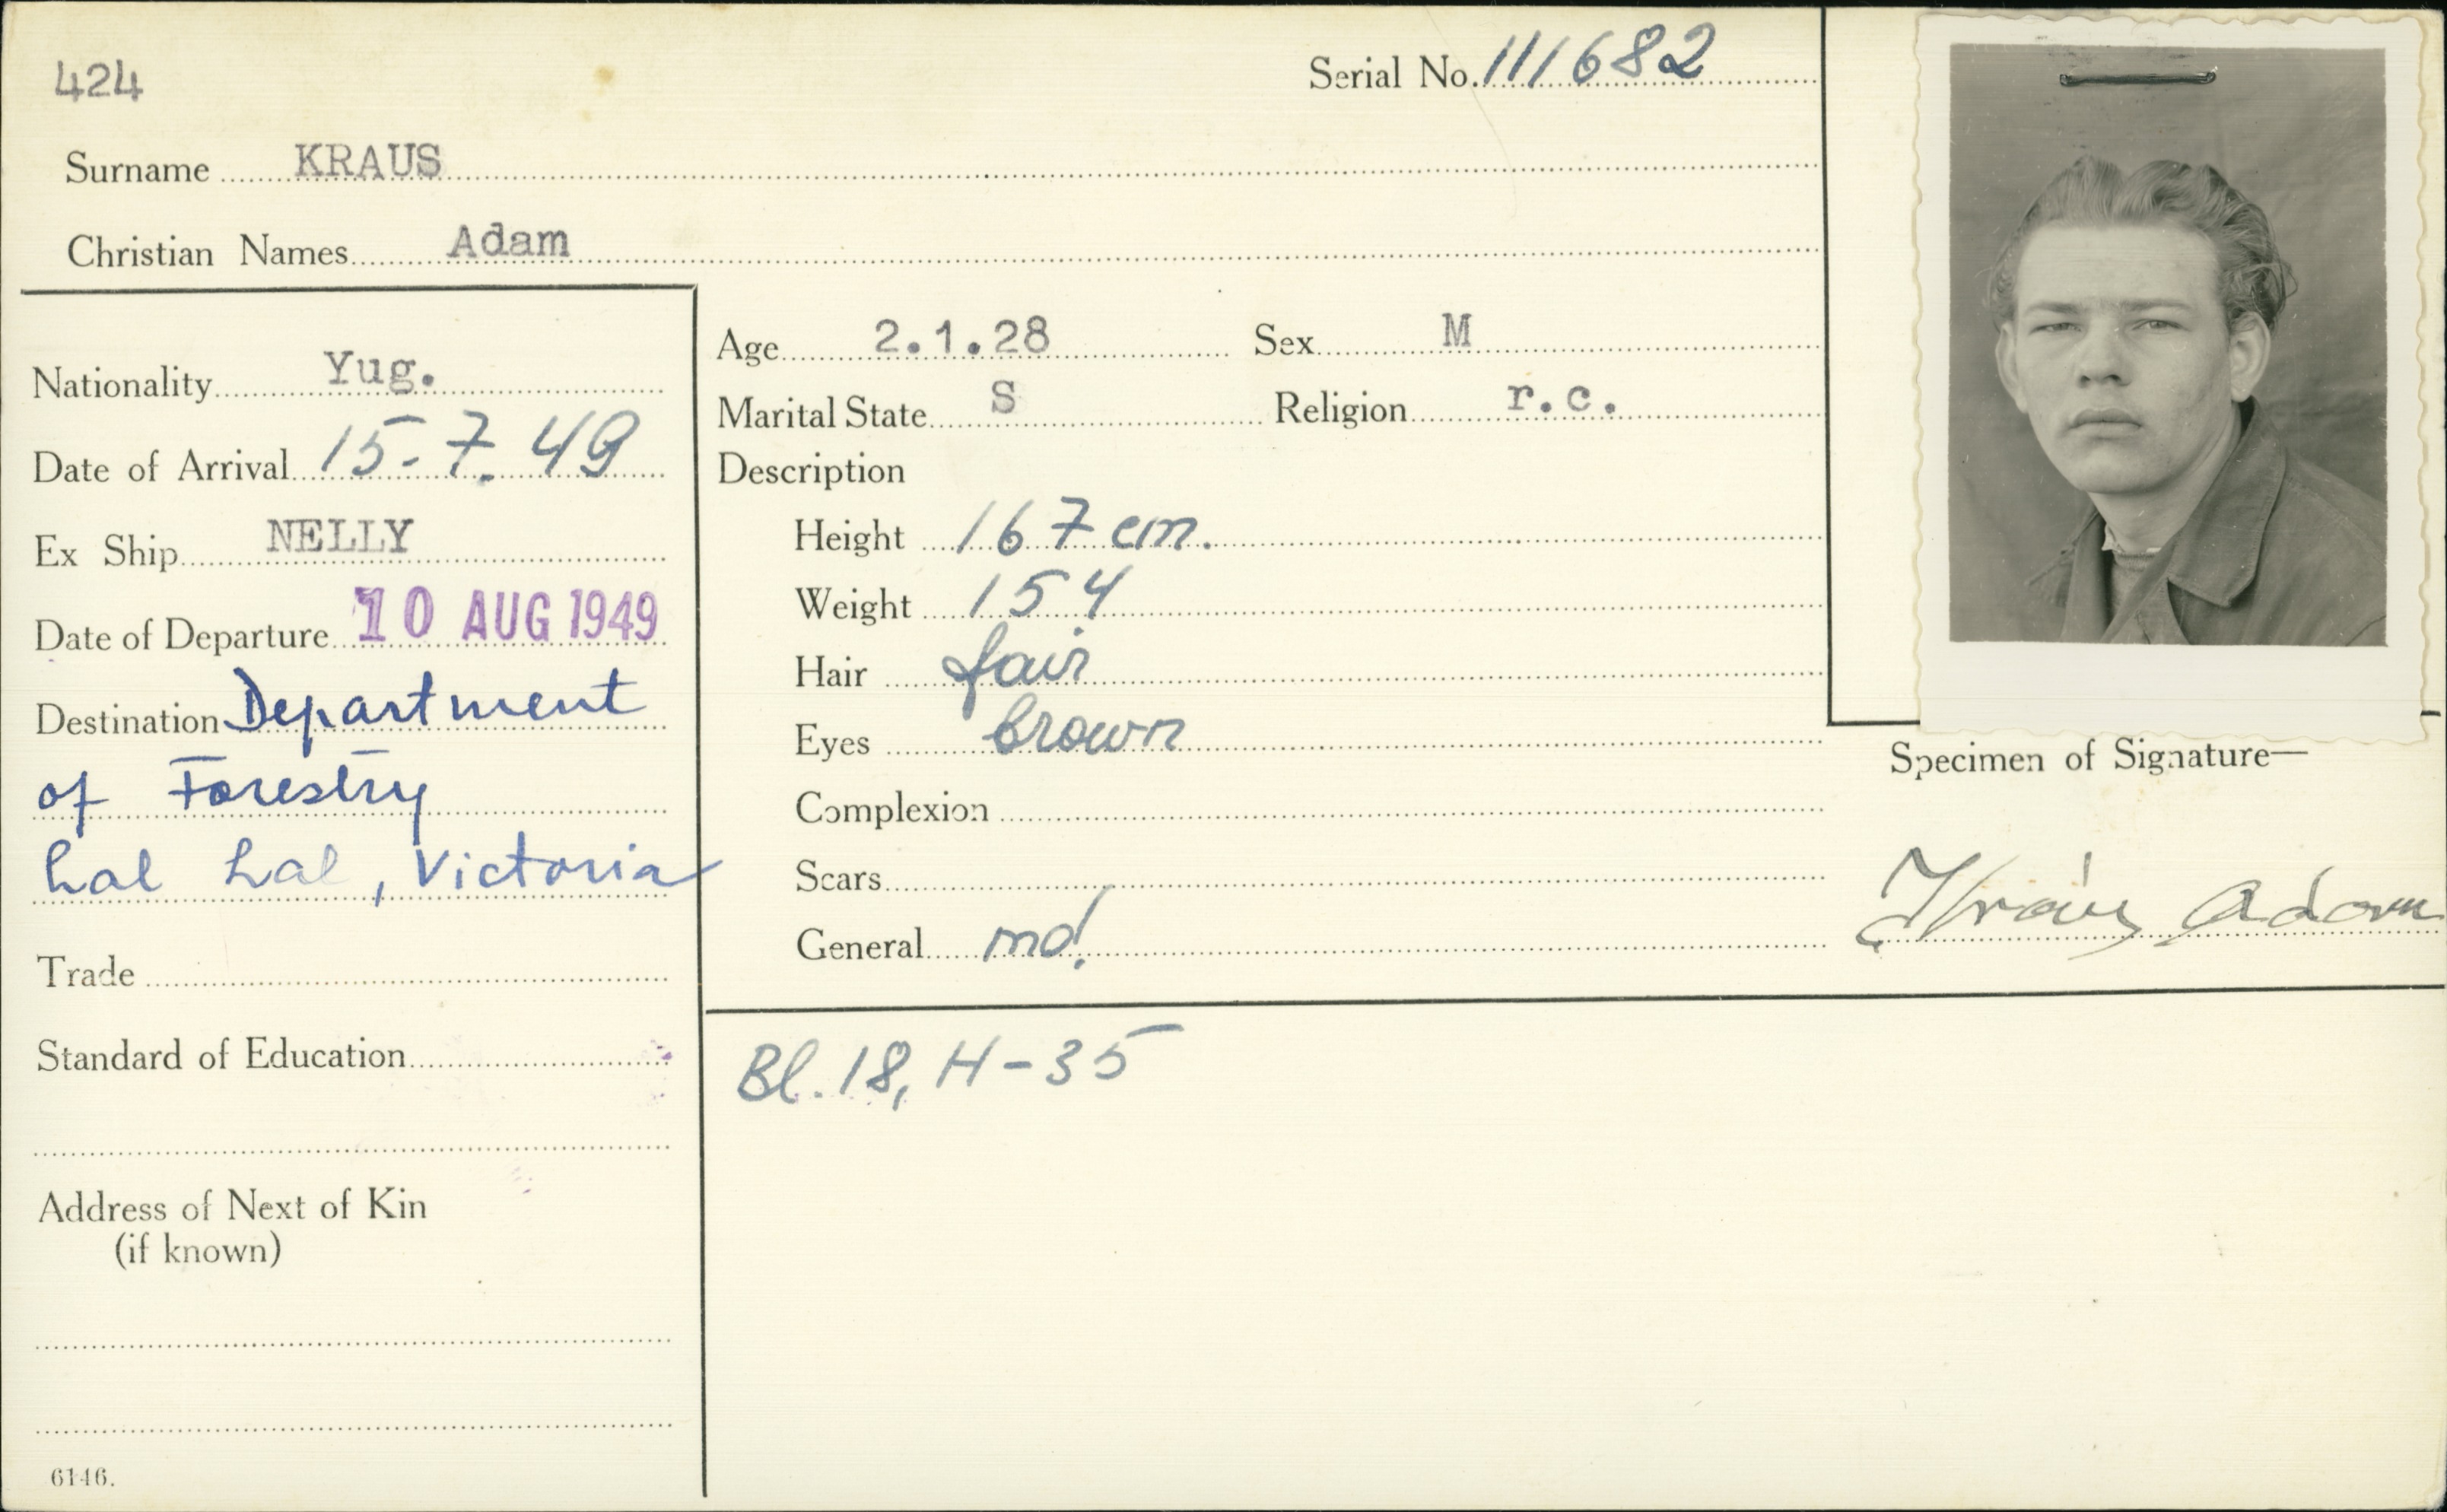 424
Serial No. 111682
Surname KRAUS
Christian Names Adam
Nationality Yug.
Date of Arrival 15-7.49
Ex Ship NELLY
Date of Departure 10 AUG 1949
Destination Department
of Forestry
Lal Lal, Victoria
Trade
Standard of Education
Address of Next of Kin
(if known)
6146.
Age 2.1.28 Sex M
Marital State S Religion r.c.
Description
Height 167 cm.
Weight 154
Hair fair
Eyes brown
Complexion
Scars
General
Bl. 18, H-35
Specimen of Signature—
Adam